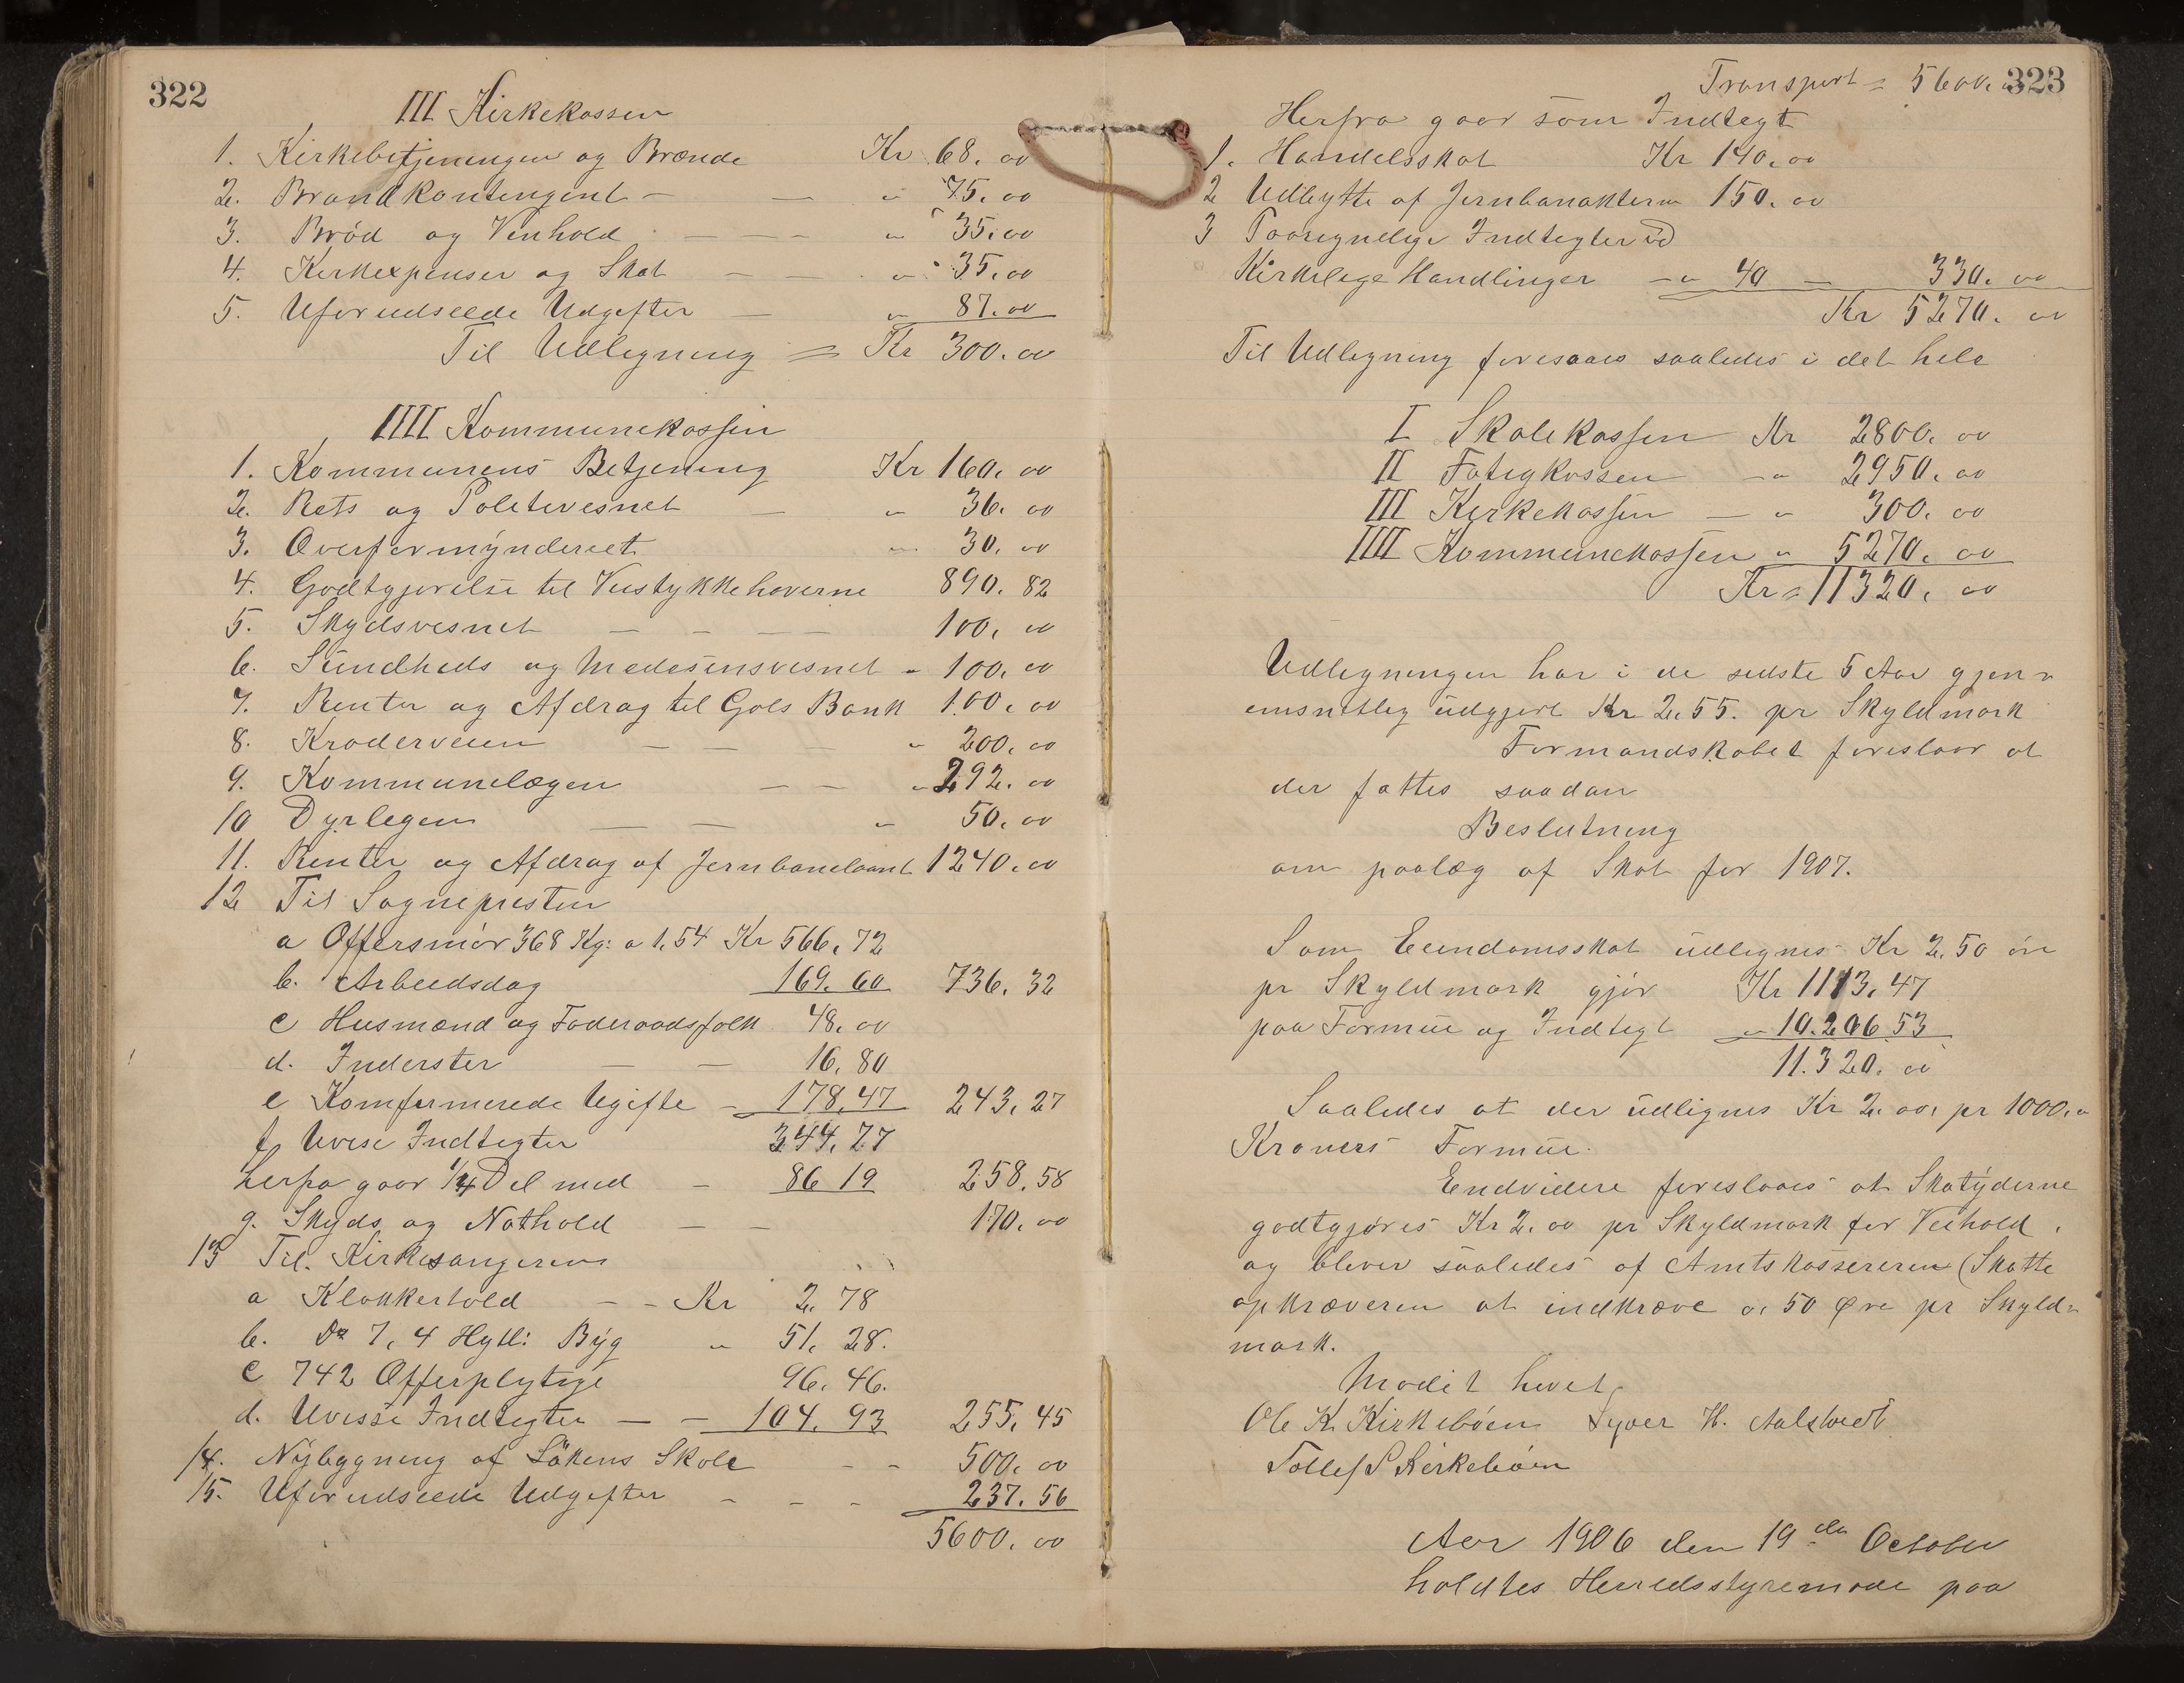 322
III Kirkekassen
1. Kirkebetjeningen og Brænde Kr 68. 00
2. Brandkontengent — — " 75. 00
3. Bröd og Vinhold — — " 35. 00
4. Kirkexpenser og Skat — — " 35. 00
5. Uforudseede Udgifter — " 87. 00
Til Udligning = Kr 300. 00
IIII Kommunekassen
1. Kommunens Betjening Kr 160. 00
2. Rets og Politivesnet — " 36. 00
3. Overformynderiet " 30. 00
4. Godtgjørelse til Veistykkehaverne 890. 82
5. Skydsvesnet — — — — 100. 00
6. Sundheds og Medesinsvesnet " 100. 00
7. Renter og Afdrag til Gols Bank 100. 00
8. Krøderveien — — — " 200. 00
9. Kommunelægen — — " 292. 00
10 Dyrlegen — — " 50. 00
11. Renter og Afdrag af Jernbanelaant 1240. 00
12 Til Sognepresten
a Offersmör 368 Kg: a 1.54 Kr 566. 72
b. Arbeidsdag 169. 60 736. 32
c Husmænd og Føderaadsfolk 48. 00
d. Inderster — — 16. 80
e Komfermerede Ugifte — 178. 47 243. 27
f. Uvise Indtegter 344. 77
herfra gaar 1/4 Del med — 86 19 258. 58
g. Skyds og Nathold — — 170. 00
13 Til Kirkesangeren
a Klokkertold — — Kr 2. 78
b. Do 7, 4 Hyll: Byg " 51. 28.
c 742 Offerplygtige 96. 46.
d. Uvisse Indtegter — — 104. 93 255. 45
14. Nybygning af Låkens Skole — — 500. 00
15. Uforudseede Udgifter — — — 237. 56
5600. 00
323
Transport = 5600.
Herfra gaar som Indtegt
1. Handelsskat Kr 140. 00
2 Udbytte af Jernbanakterne 150. 00
3 Paaregnelige Indtegter ved
Kirkelige Handlinger — " 40 — 330. 00
Kr 5270. 00
Til Udligning foresaaes saaledes i det hele
I Skolekassen Kr 2800. 00
II Fatigkassen — " 2950. 00
III Kirkekassen — " 300. 00
IIII Kommunekassen " 5270. 00
Kr = 11320. 00
Udligningen har i de sidste 5 Aar gjen=
emsnitlig udgjort Kr 2.55. pr Skyldmark
Formandskabet foreslaar at
der fattes saadan
Beslutning
om paalæg af Skat for 1907.
Som Eiendomsskat udlignes Kr 2.50 öre
pr Skyldmark gjör Kr 1113. 47
paa Formue og Indtegt " 10.206 53
11.320. 00
Saaledes at der udlignes Kr 2. 00. pr 1000.00
Kroners Formue.
Endvidere foreslaaes at Skatyderne
godtgjöres Kr 2. 00 pr Skyldmark for Veihold.
og bliver saaledes af Amtskassereren (Skatte
opkræveren at indkræve 0. 50 Øre pr Skyld=
mark.
Mödet hevet.
Ole K. Kirkeböen Syver H. Aalstvedt
Tollef S Kirkeböen
Aar 1906 den 19de October
holdtes Herredsstyremøde paa